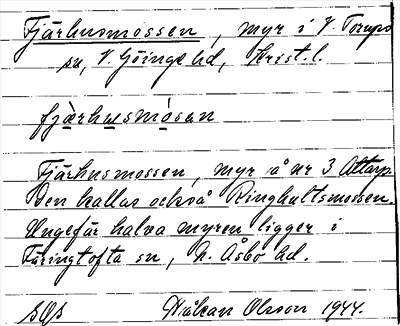 Fjärhusmossen, myr i V. Torups
sn, V. Göinge hd, Krist. l.
fjæ̀rhusmósən
Fjärhusmossen, myr å nr 3 Attarp.
Den kallas också Ringhultsmossen.
Ungefär halva myren ligger i
Färingtofta sn, N. Åsbo hd.
Håkan Olsson 1944.